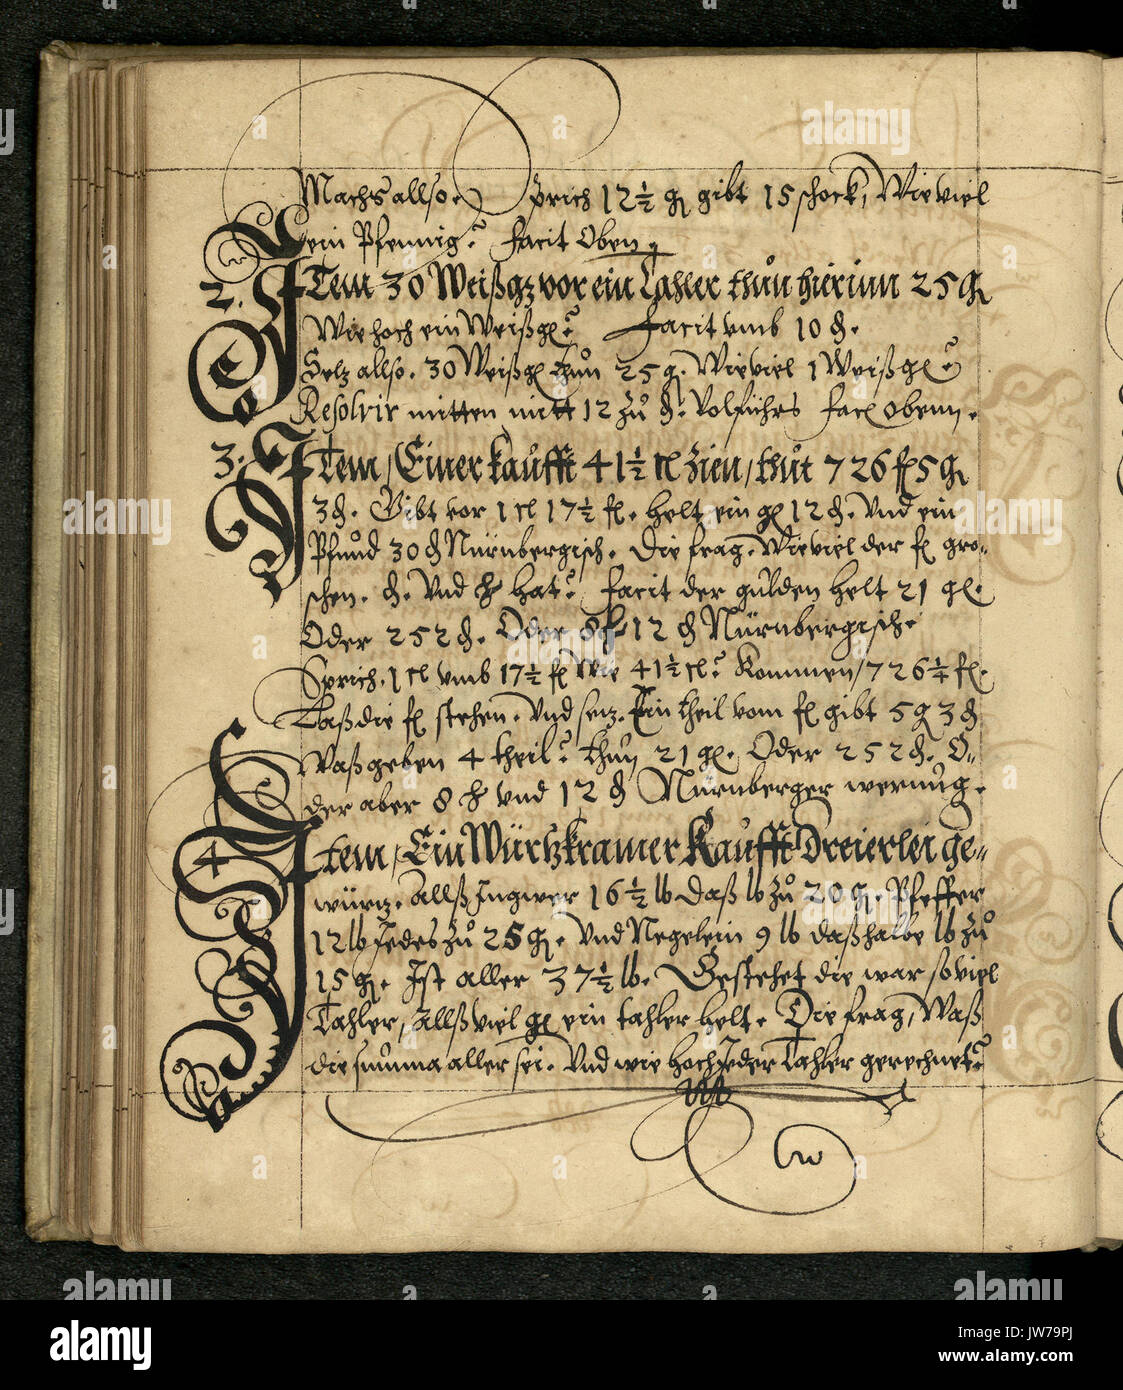 Machs allso. Sprich 12 ½ g gibt 15 schock, Wie viel
ein Pfennig? facit Oben.
2. ITem 30 Weißg vor ein Tahler thun hierinn 25 g
Wie hoch ein Weißg? facit umb 10 d.
Setz allso. 30 Weißg thun 25 g. Wie viel 1 Weißg?
Resolvir mitten mitt 12 zu d. Volführs facit obenn.
3. ITem, Einer kaufft 41 ½ cl zien, thut 726 fl 5 g
3 d. Gibt vor 1 cl 17 ½ fl. helt ein gl 12 d. Und ein
Pfund 30 d Nürnbergisch. Die frag. Wie viel der fl gro=
schen. d. Und ℔ hat? facit der gulden helt 21 gl.
Oder 252 d. Oder 8 ℔ 12 d Nürnbergisch.
Sprich. 1 cl umb 17 ½ fl Wie 41 ½ cl? Kommen, 726 ¼ fl.
Laß die fl stehen. Und setz. Ein theil vom fl gibt 5 g 3 d
Waß geben 4 theil? thun 21 gl. Oder 252 d. O=
der aber 8 ℔ und 12 d Nürnberger werung.
4 Item, Ein Würtzkramer Kaufft Dreierlei ge=
würtz. Allß Ingwer 16 ½ lb daß lb zu 20 g. Pfeffer
12 lb Jedes zu 25 g. Und Negelein 9 lb daß halbe lb zu
15 g. Ist aller 37 ½ lb. Gestehet die war so viel
Tahler, Allß viel gl ein tahler helt. Die frag, Waß
die summa aller sei. Und wie hoch Jeder Tahler gerechnet?
alamy
a
alamy stock photo
JW79PJ
www.alamy.com